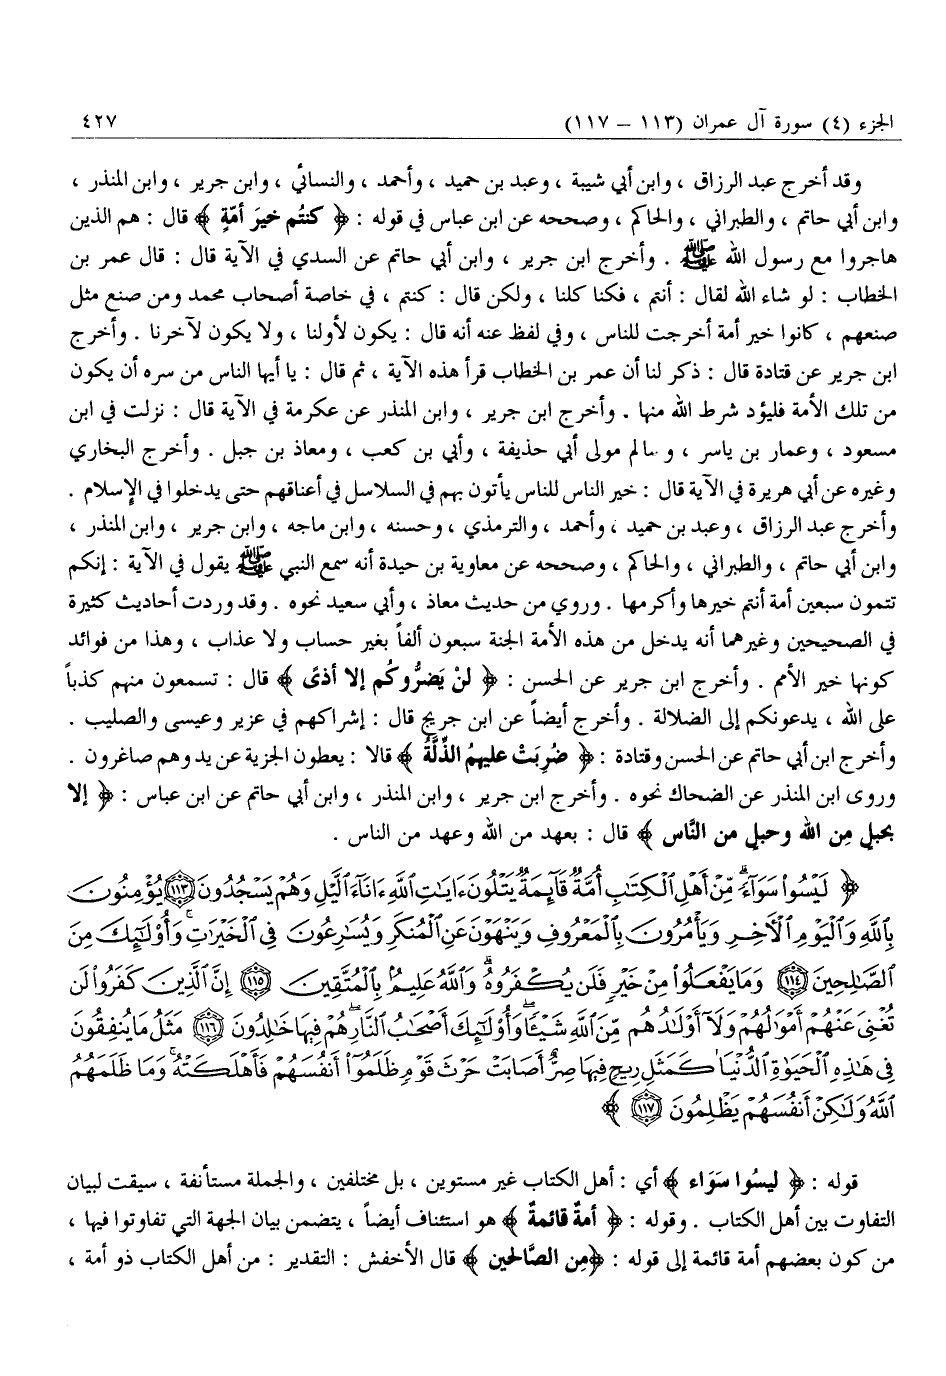 الجزء (٤) سورة آل عمران (١١٣ – ١١٧) ٤٢٧
وقد أخرج عبد الرزاق ، وابن أبي شيبة ، وعبد بن حميد ، وأحمد ، والنسائي ، وابن جرير ، وابن المنذر ،
وابن أبي حاتم ، والطبراني ، والحاكم ، وصححه عن ابن عباس في قوله : ﴿ كنتُم خيرَ أمّةٍ ﴾ قال : هم الذين
هاجروا مع رسول الله ﷺ . وأخرج ابن جرير ، وابن أبي حاتم عن السدي في الآية قال : قال عمر بن
الخطاب : لو شاء الله لقال : أنتم ، فكنا كلنا ، ولكن قال : كنتم ، في خاصة أصحاب محمد ومن صنع مثل
صنعهم ، كانوا خير أمة أخرجت للناس ، وفي لفظ عنه أنه قال : يكون لأولنا ، ولا يكون لآخرنا . وأخرج
ابن جرير عن قتادة قال : ذكر لنا أن عمر بن الخطاب قرأ هذه الآية ، ثم قال : يا أيها الناس من سره أن يكون
من تلك الأمة فليؤد شرط الله منها . وأخرج ابن جرير ، وابن المنذر عن عكرمة في الآية قال : نزلت في ابن
مسعود ، وعمار بن ياسر ، وسالم مولى أبي حذيفة ، وأبي بن كعب ، ومعاذ بن جبل . وأخرج البخاري
وغيره عن أبي هريرة في الآية قال : خير الناس للناس يأتون بهم في السلاسل في أعناقهم حتى يدخلوا في الإسلام .
وأخرج عبد الرزاق ، وعبد بن حميد ، وأحمد ، والترمذي ، وحسنه ، وابن ماجه ، وابن جرير ، وابن المنذر ،
وابن أبي حاتم ، والطبراني ، والحاكم ، وصححه عن معاوية بن حيدة أنه سمع النبي ﷺ يقول في الآية : إنكم
تتمون سبعين أمة أنتم خيرها وأكرمها . وروي من حديث معاذ ، وأبي سعيد نحوه . وقد وردت أحاديث كثيرة
في الصحيحين وغيرهما أنه يدخل من هذه الأمة الجنة سبعون ألفاً بغير حساب ولا عذاب ، وهذا من فوائد
كونها خير الأمم . وأخرج ابن جرير عن الحسن : ﴿ لنْ يَضرُّوكُم إلا أذىً ﴾ قال : تسمعون منهم كذباً
على الله ، يدعونكم إلى الضلالة . وأخرج أيضاً عن ابن جريج قال : إشراكهم في عزير وعيسى والصليب .
وأخرج ابن أبي حاتم عن الحسن وقتادة : ﴿ ضُرِبَتْ عليهمُ الذِّلَّةُ ﴾ قالا : يعطون الجزية عن يد وهم صاغرون .
وروى ابن المنذر عن الضحاك نحوه . وأخرج ابن جرير ، وابن المنذر ، وابن أبي حاتم عن ابن عباس : ﴿ إلا
بحبلٍ مِن الله وحبلٍ من النَّاس ﴾ قال : بعهد من الله وعهد من الناس .
﴿ لَيْسُوا۟ سَوَآءً ۗ مِّنْ أَهْلِ ٱلْكِتَٰبِ أُمَّةٌ قَآئِمَةٌ يَتْلُونَ ءَايَٰتِ ٱللَّهِ ءَانَآءَ ٱلَّيْلِ وَهُمْ يَسْجُدُونَ ﴿١١٣﴾ يُؤْمِنُونَ
بِٱللَّهِ وَٱلْيَوْمِ ٱلْءَاخِرِ وَيَأْمُرُونَ بِٱلْمَعْرُوفِ وَيَنْهَوْنَ عَنِ ٱلْمُنكَرِ وَيُسَٰرِعُونَ فِى ٱلْخَيْرَٰتِ ۖ وَأُو۟لَٰٓئِكَ مِنَ
ٱلصَّٰلِحِينَ ﴿١١٤﴾ وَمَا يَفْعَلُوا۟ مِنْ خَيْرٍ فَلَن يُكْفَرُوهُ ۗ وَٱللَّهُ عَلِيمٌۢ بِٱلْمُتَّقِينَ ﴿١١٥﴾ إِنَّ ٱلَّذِينَ كَفَرُوا۟ لَن
تُغْنِىَ عَنْهُمْ أَمْوَٰلُهُمْ وَلَآ أَوْلَٰدُهُم مِّنَ ٱللَّهِ شَيْـًٔا ۖ وَأُو۟لَٰٓئِكَ أَصْحَٰبُ ٱلنَّارِ ۚ هُمْ فِيهَا خَٰلِدُونَ ﴿١١٦﴾ مَثَلُ مَا يُنفِقُونَ
فِى هَٰذِهِ ٱلْحَيَوٰةِ ٱلدُّنْيَا كَمَثَلِ رِيحٍ فِيهَا صِرٌّ أَصَابَتْ حَرْثَ قَوْمٍ ظَلَمُوٓا۟ أَنفُسَهُمْ فَأَهْلَكَتْهُ ۚ وَمَا ظَلَمَهُمُ
ٱللَّهُ وَلَٰكِنْ أَنفُسَهُمْ يَظْلِمُونَ ﴿١١٧﴾ ﴾
قوله : ﴿ ليسُوا سَوَاء ﴾ أي : أهل الكتاب غير مستوين ، بل مختلفين ، والجملة مستأنفة ، سيقت لبيان
التفاوت بين أهل الكتاب . وقوله : ﴿ أمةٌ قائمةٌ ﴾ هو استئناف أيضاً ، يتضمن بيان الجهة التي تفاوتوا فيها ،
من كون بعضهم أمة قائمة إلى قوله : ﴿مِن الصَّالحين ﴾ قال الأخفش : التقدير : من أهل الكتاب ذو أمة ،